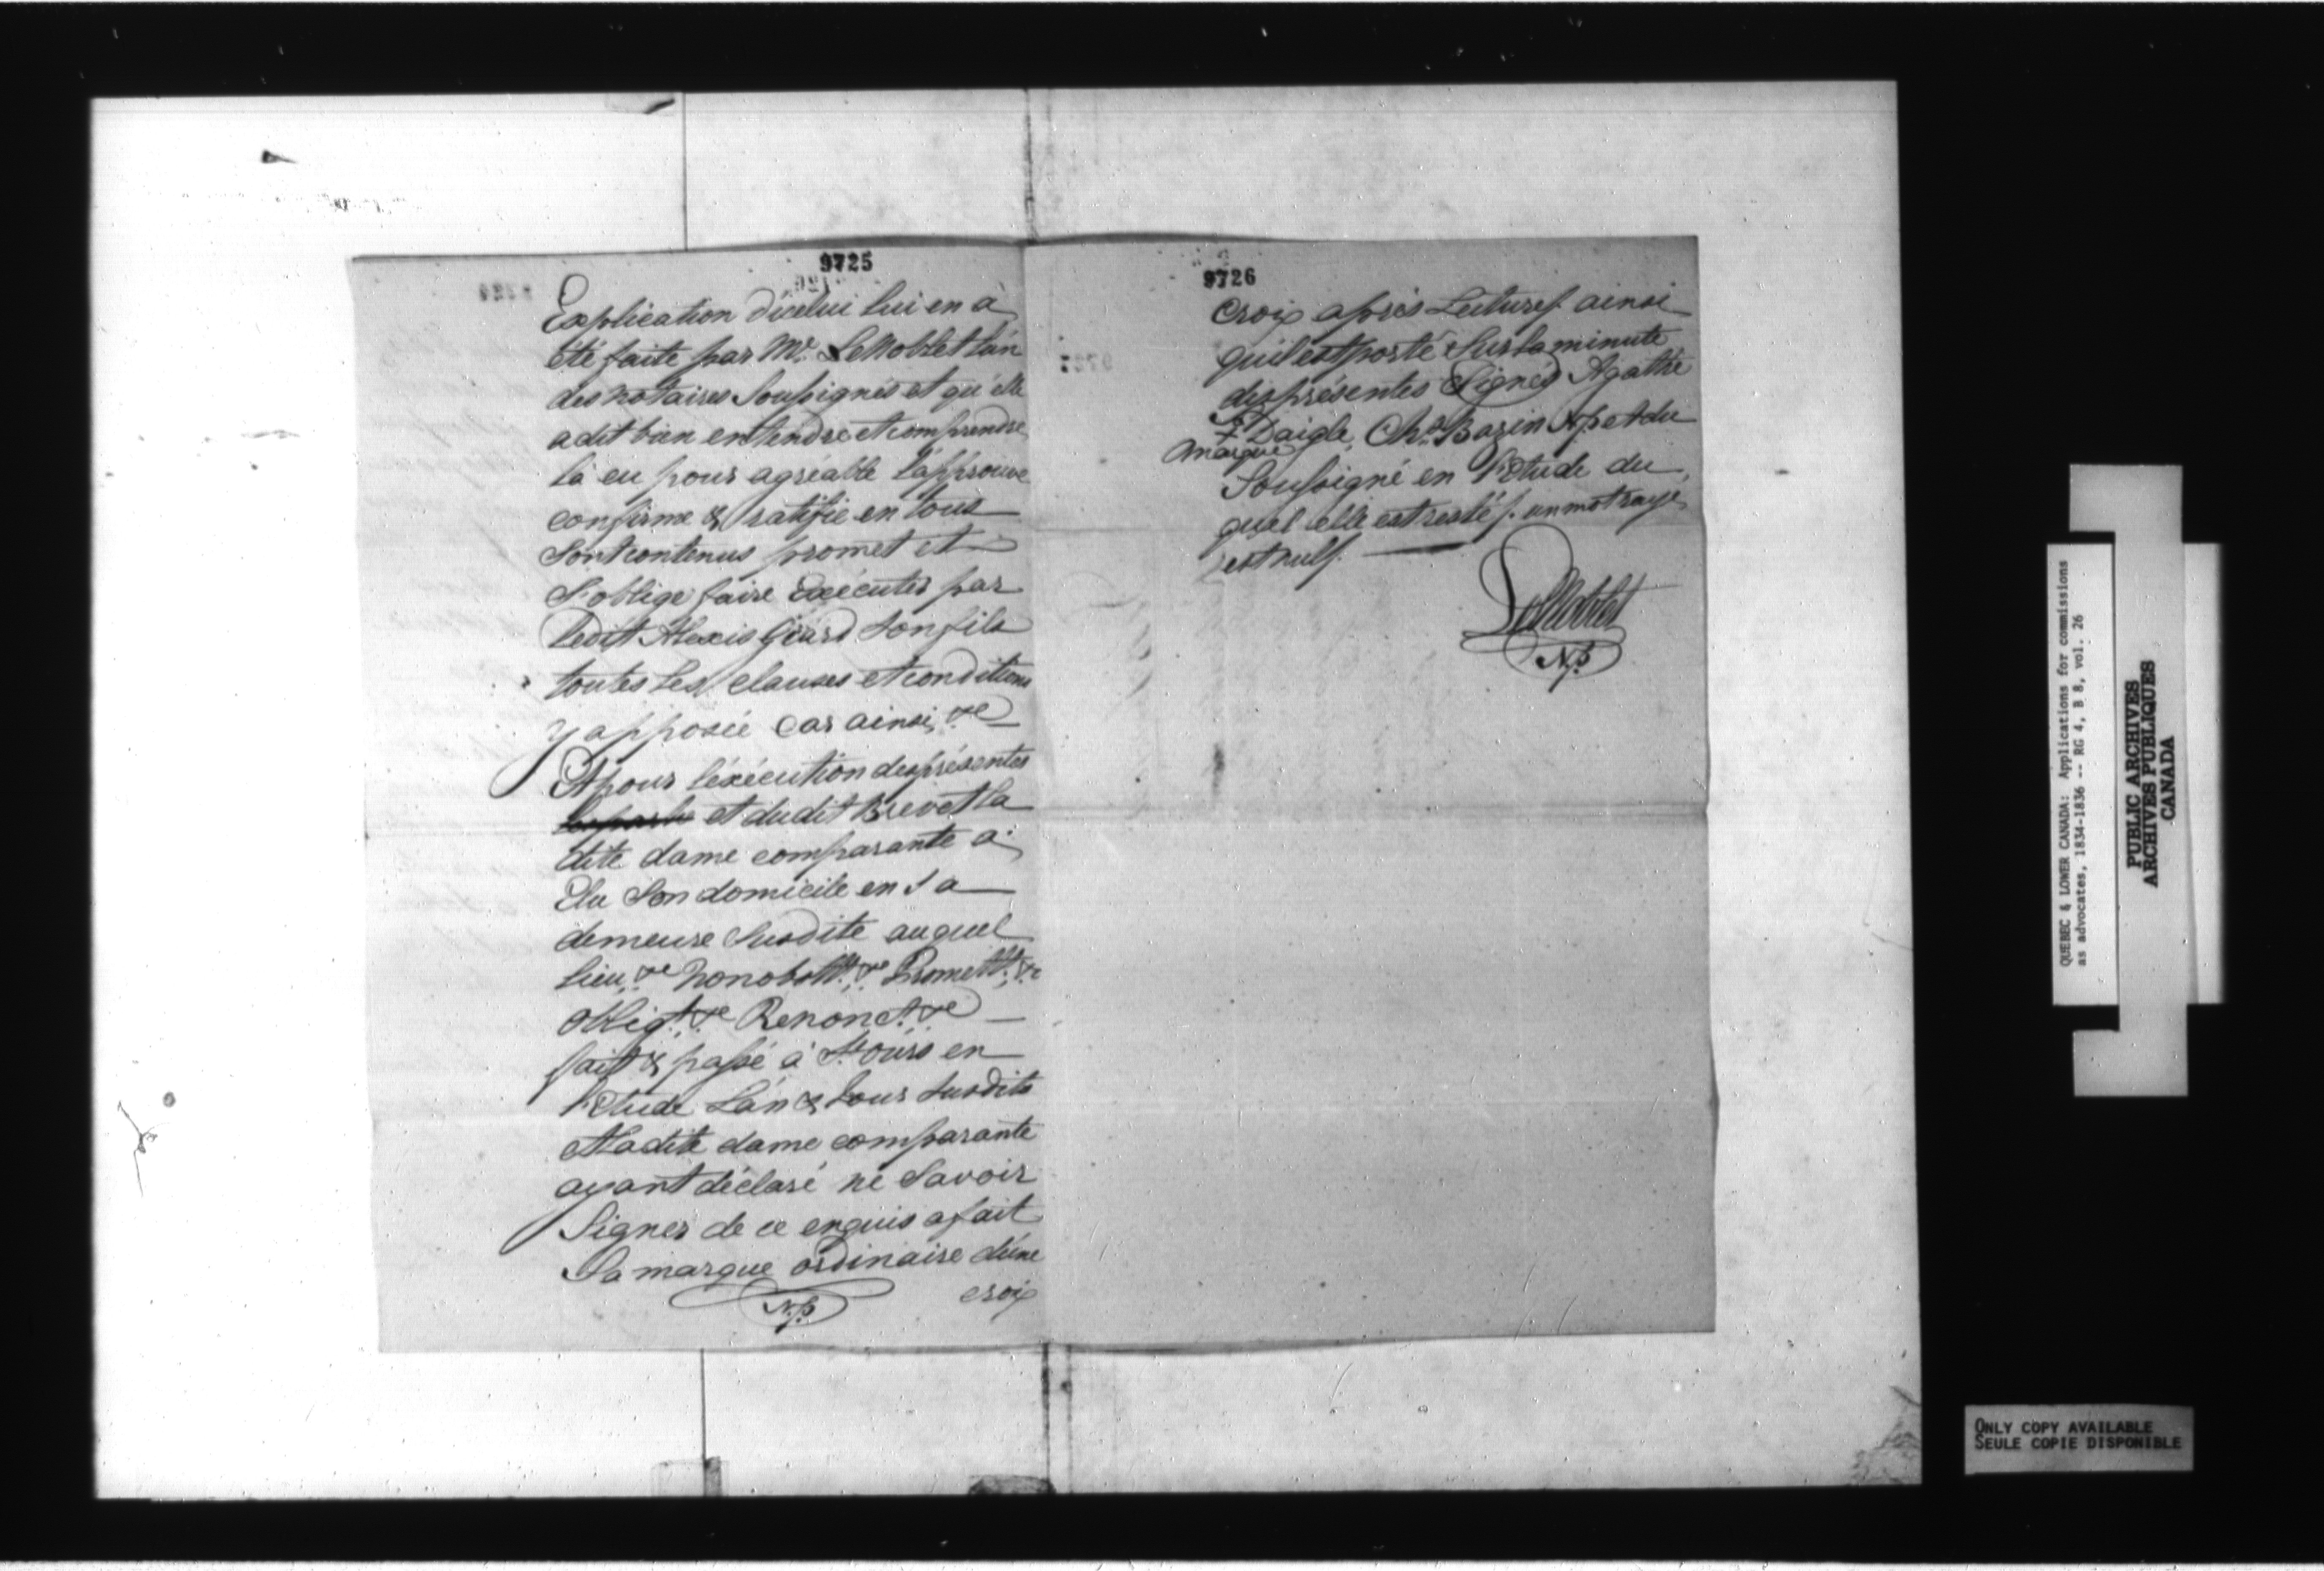 9725
Explication d'icelui lui en à
été faite par Mr. LeNoblet l'un
des notaires Soussignés et qu'elle
a dit bien entendre et comprendre
là eu pour agréable l'approuve
confirme & ratifie en tous
Sont contenus promet et
S'oblige faire Exécuter par
Ledit Alexis Girard Son fils
toutes Les clauses et conditions
y apposée Car ainsi &c
Et pour l'éxécution des présentes
et dudit Brevet la
dite dame comparante à
Elu Son domicile en Sa
demeure Susdite auquel
lieu &c Nonobstt. &c Promett. &c
obligt. &c Renonct. &c
fait & passé à St. Ours en
l'Etude L'án & Jour Susdits
et ladite dame comparante
ayant déclaré ne Savoir
Signer de ce enquis a fait
Sa marque ordinaire d'une
croix
N.P.
9726
Croix après Lecture./. ainsi
qu'il est porté Sur la minute
des présentes Signés Agathe
+ Daigle, Chs. Bazin N.p et du
marque
Soussigné en l'Etude du
quel elle est resté /. un mot rayé
est nul./.
LeNoblet
N.P.
QUEBEC & LOWER CANADA: Applications for commissions
as advocates, 1834-1836 -- RG 4, B 8, vol. 26
PUBLIC ARCHIVES
ARCHIVES PUBLIQUES
CANADA
ONLY COPY AVAILABLE
SEULE COPIE DISPONIBLE